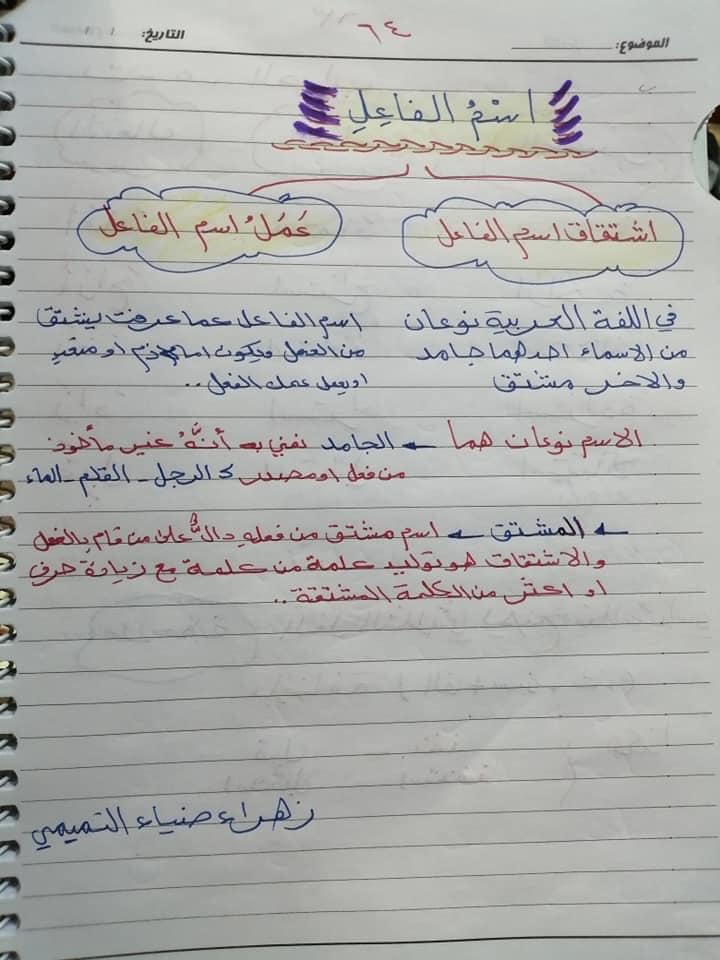 الموضوع: ٦٤ التاريخ: / /
اسْمُ الفاعِلِ
اشتقاق اسم الفاعل
عَمَلُ اسم الفاعل
في اللغة العربية نوعان
من الاسماء احدهما جامد
والاخر مشتق
اسم الفاعل كما عرفت يشتق
من الفعل ويكون اما لازم او متعدٍ
او يعمل عمل الفعل..
الاسم نوعان هما ← الجامد نعني به أنَّهُ غير مأخوذ
من فعل او مصدر > الرجل - القلم - الماء
← المشتق ← اسم مشتق من فعلهِ دالٌّ على من قام بالفعل
والاشتقاق هو توليد كلمة من كلمة مع زيادة حرف
او اكثر من الكلمة المشتقة..
زهراء ضياء التميمي